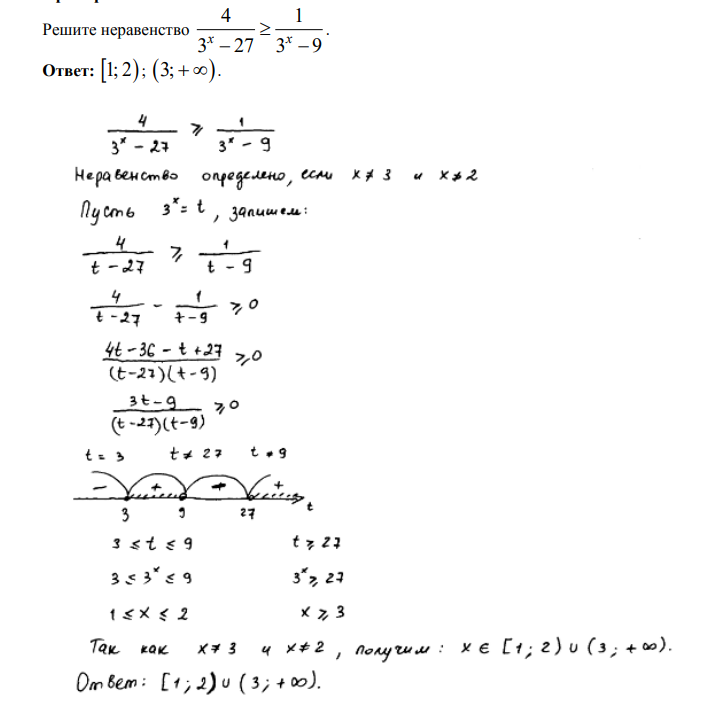 Решите неравенство 4/(3^x − 27) ≥ 1/(3^x − 9).
Ответ: [1; 2); (3; + ∞).
4/(3^x − 27) ≥ 1/(3^x − 9)
Неравенство определено, если x ≠ 3 и x ≠ 2
Пусть 3^x = t, запишем:
4/(t − 27) ≥ 1/(t − 9)
4/(t − 27) − 1/(t − 9) ≥ 0
(4t − 36 − t + 27)/((t − 27)(t − 9)) ≥ 0
(3t − 9)/((t − 27)(t − 9)) ≥ 0
t = 3 t ≠ 27 t ≠ 9
− + − +
3 9 27 t
3 ≤ t ≤ 9 t ≥ 27
3 ≤ 3^x ≤ 9 3^x ≥ 27
1 ≤ x ≤ 2 x ≥ 3
Так как x ≠ 3 и x ≠ 2, получим: x ∈ [1; 2) ∪ (3; +∞).
Ответ: [1; 2) ∪ (3; +∞).